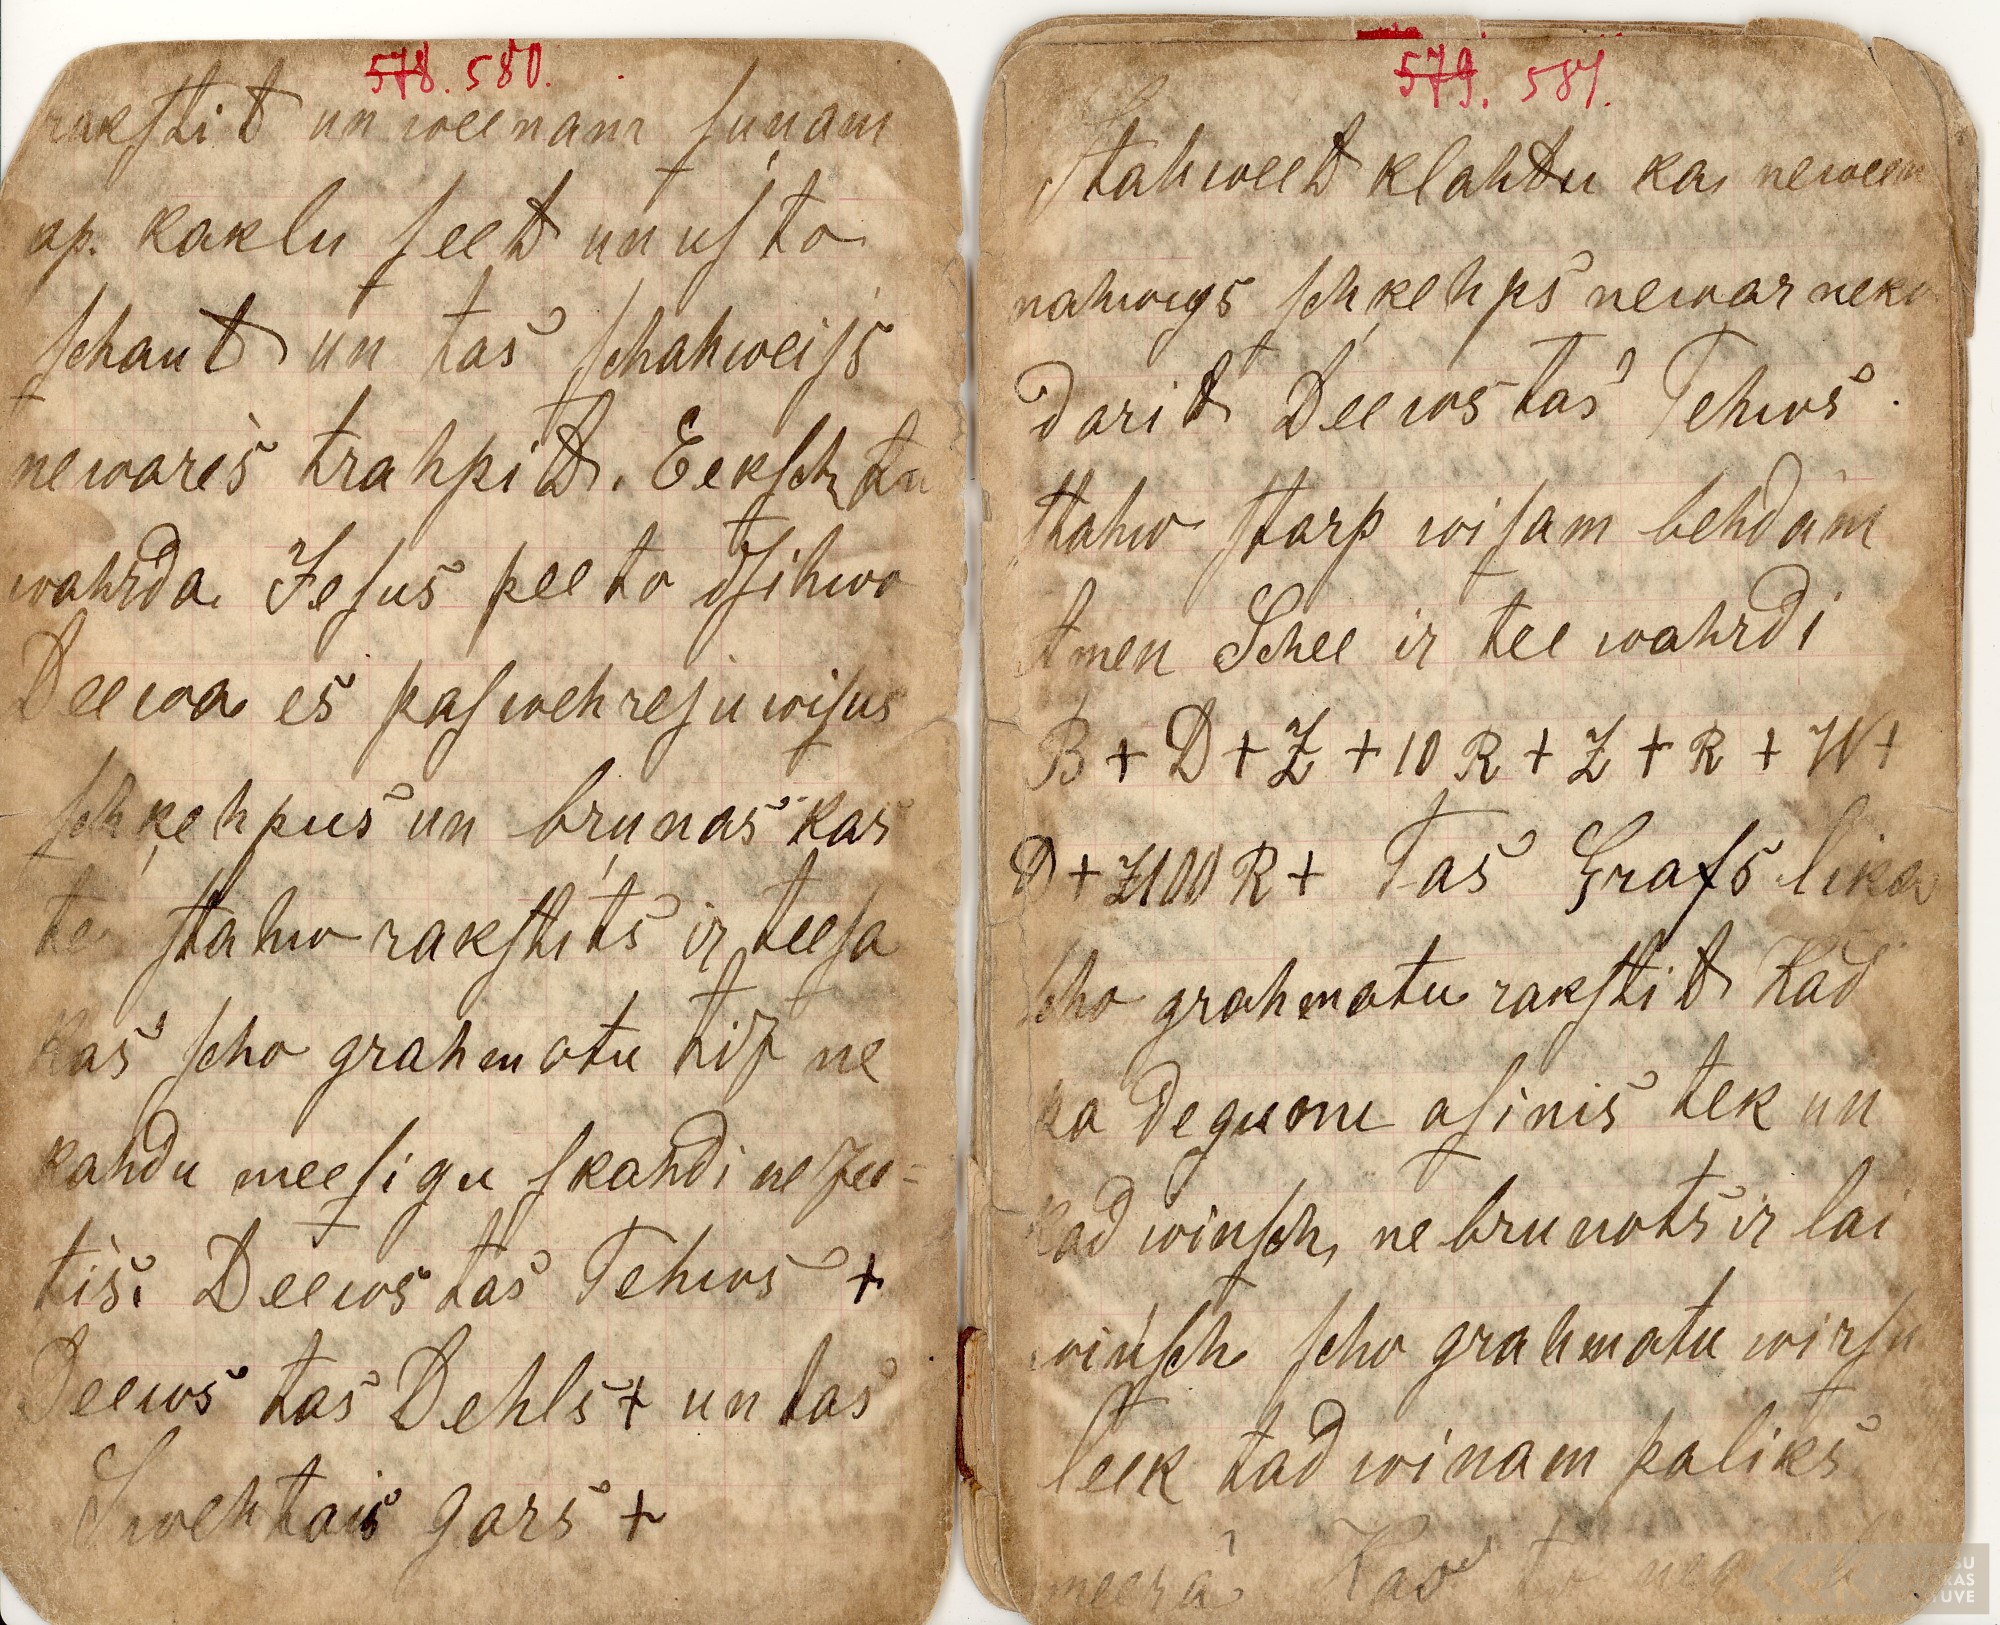 578. 580.
rakſtit un weenam ſuņam
ap. kaklu ſeet un uſ to
ſchaut un tas ſchahweijs
newareṡ trahpit. Eekſch tu
wahrda Jeſus pee to dſihwo
Deewa es paſwehreju wiſus
ſchķehpus un bruņas kas
te ſtahw rakſtits ir teeſa
Kas ſcho grahmatu tiz ne
kahdu meeſigu ſkahdi ne zee-
tis. Deews tas Tehws +
Deews tas Dehls + un tas
Swehtais gars +
579. 581.
Stahweet klahtu ka neween
nahwigs ſchķehps newar neko
darit Deews tas Tehws.
ſtahw ſtarp wiſam behdam
Amen Schee ir tee wahrdi
B + D + Z + 10 R + Z + R + W +
D + Z100 R + Tas Grafs lika
ſcho grahmatu rakſtit Kad
ka deguonu aſinis tek un
kad winſch ne brunots ir lai
winſch ſcho grahmatu wirſu
leek tad winam paliks
meerâ Kas to